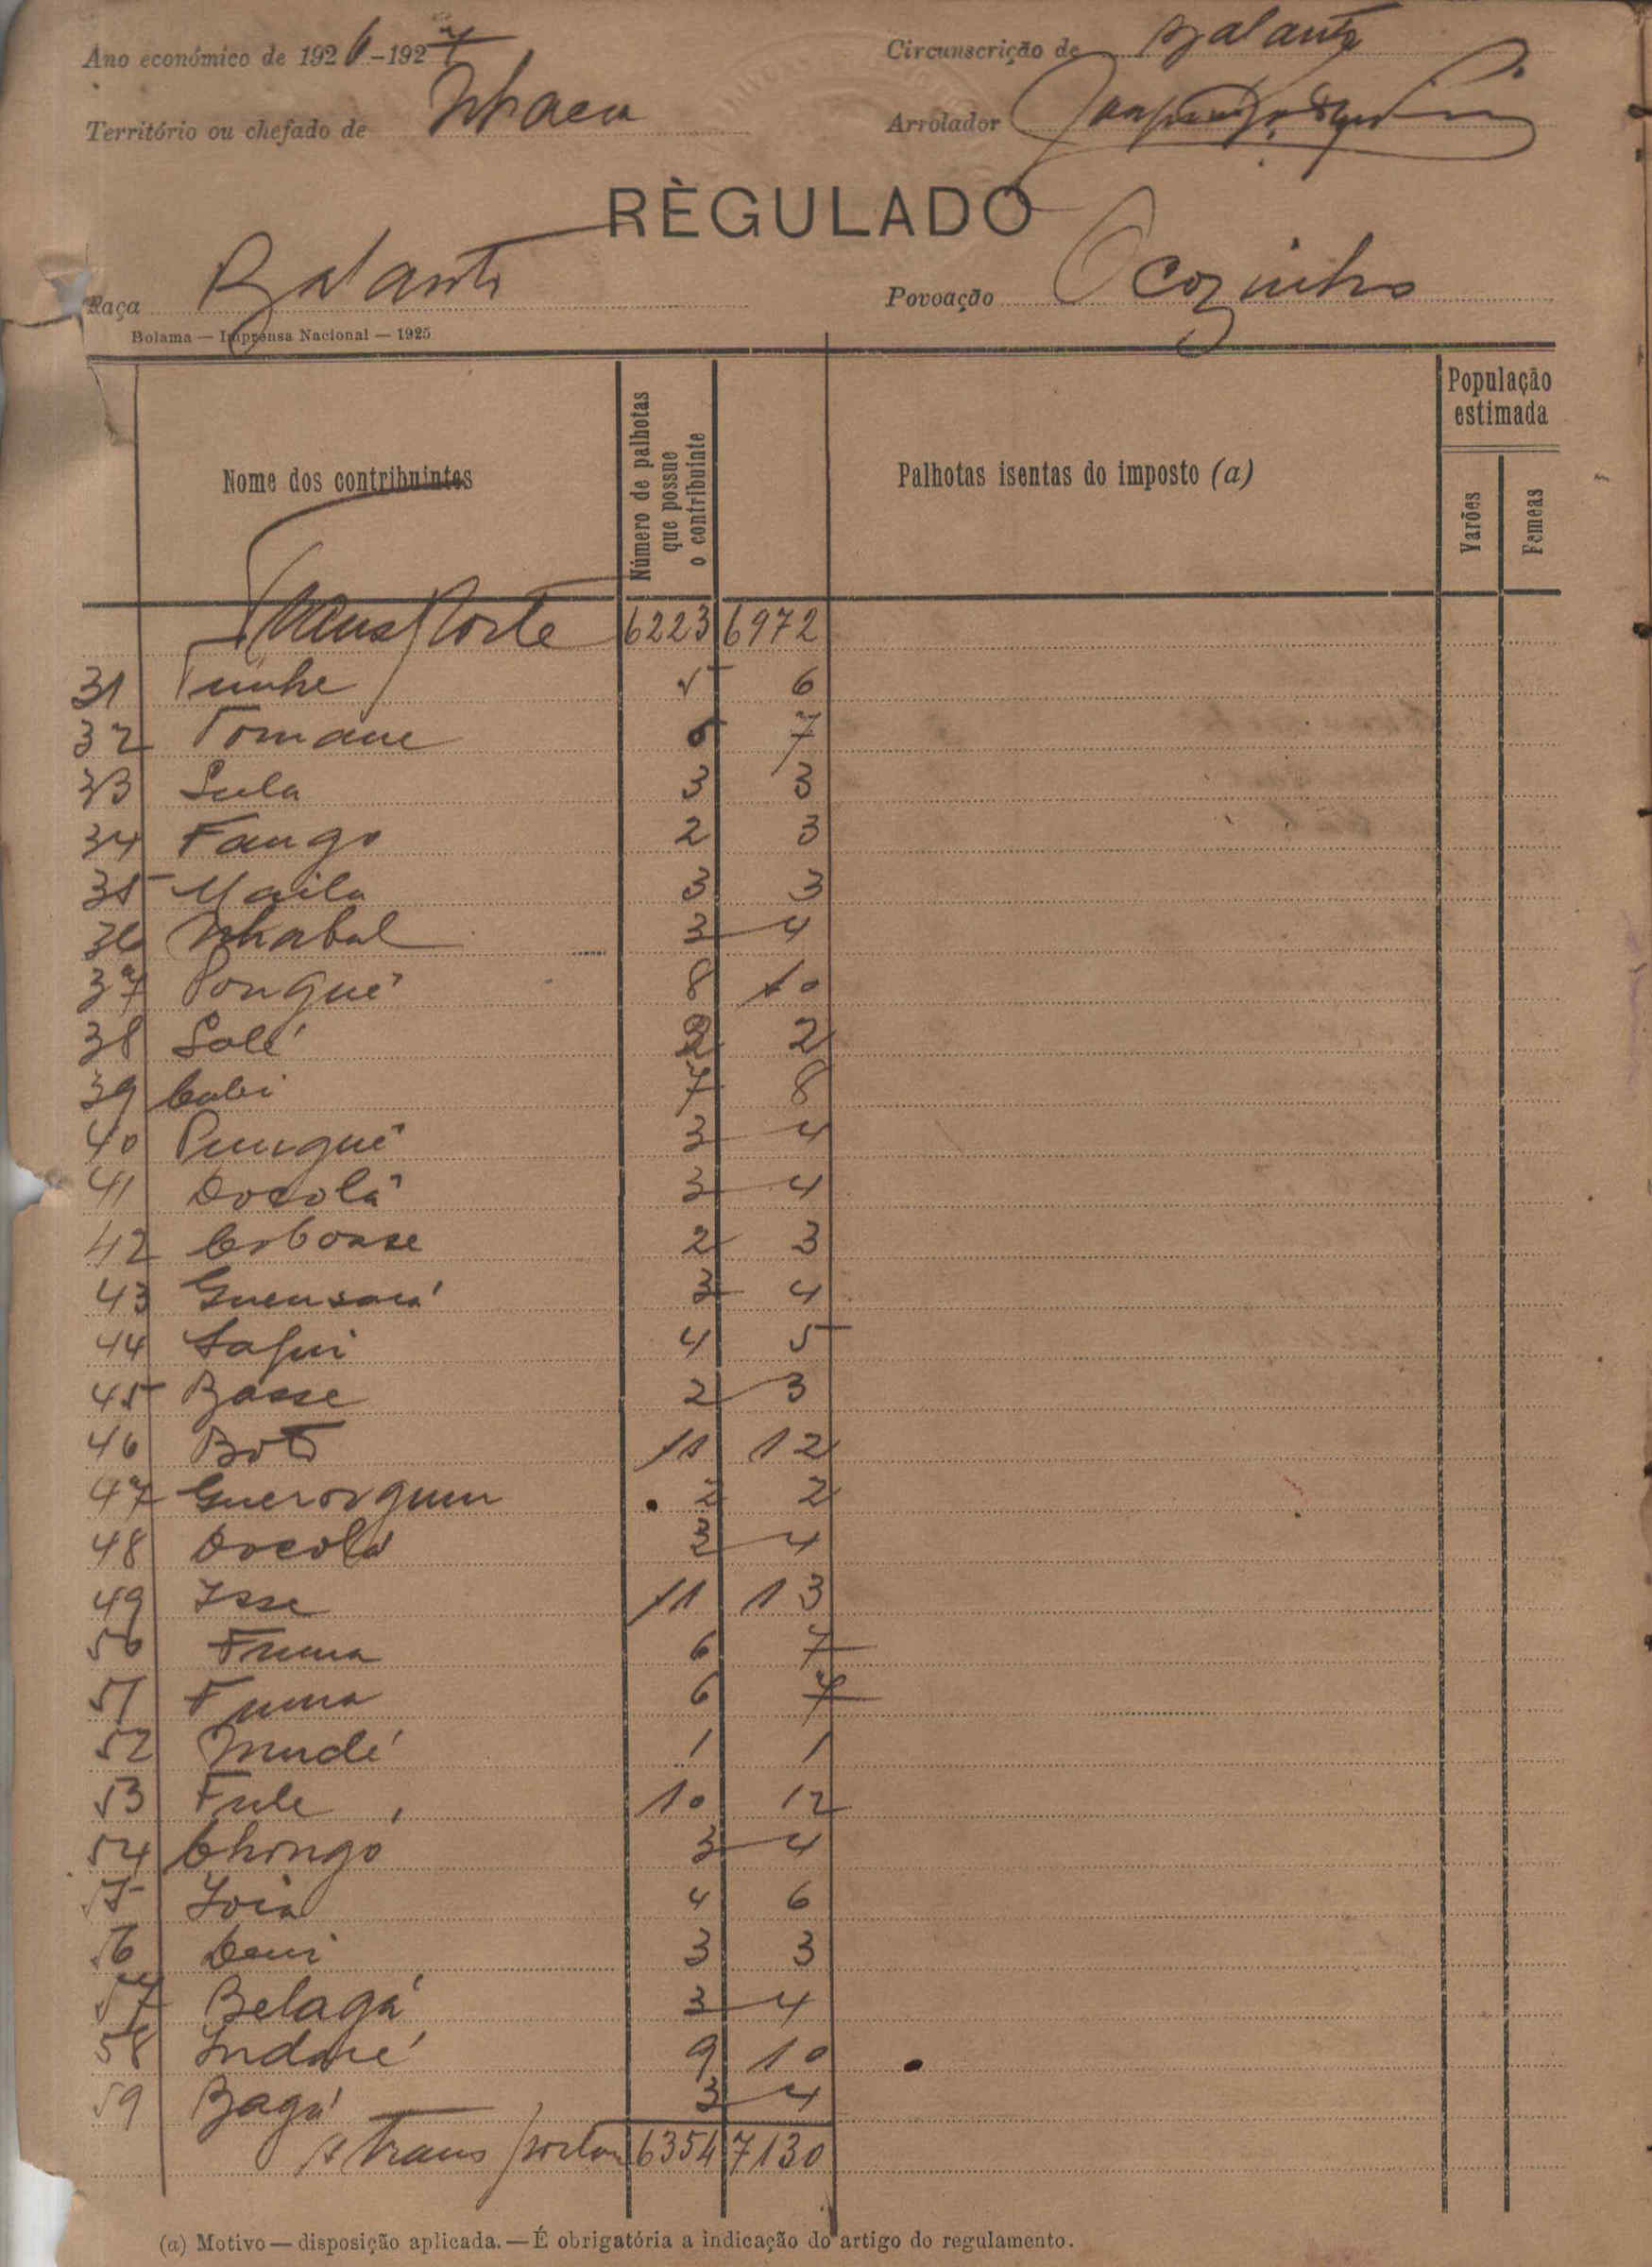 Ano económico de 1926-1927 Circunscrição de Balanta
Território ou chefado de Nhacra Arrolador
RÈGULADO
Raça Balanta Povoação Ocozinho
Bolama — Imprensa Nacional — 1925
Nome dos contribuintes
Número de palhotas
que possue
o contribuinte
Palhotas isentas do imposto (a)
População
estimada
Varões
Femeas
Transporte 6223 6972
31 Tunhe 5 6
32 Tomane 6 7
33 Sula 3 3
34 Fango 2 3
35 Maila 3 3
36 Nhabal 3 4
37 Ponguê 8 10
38 Salé 2 2
39 Cabi 7 8
40 Punguê 3 4
41 Docolâ 3 4
42 Cobonse 2 3
43 3 4
44 Safui 4 5
45 Basse 2 3
46 Botó 11 12
47 2 2
48 Docolá 3 4
49 Isse 11 13
50 Fuma 6 7
51 Fuma 6 7
52 Mudé 1 1
53 Fule 10 12
54 Chongo 3 4
55 Joia 4 6
56 Deni 3 3
57 Belagá 3 4
58 Indané 9 10
59 Bagá 3 4
A transportar 6354 7130
(a) Motivo — disposição aplicada. — É obrigatória a indicação do artigo do regulamento.